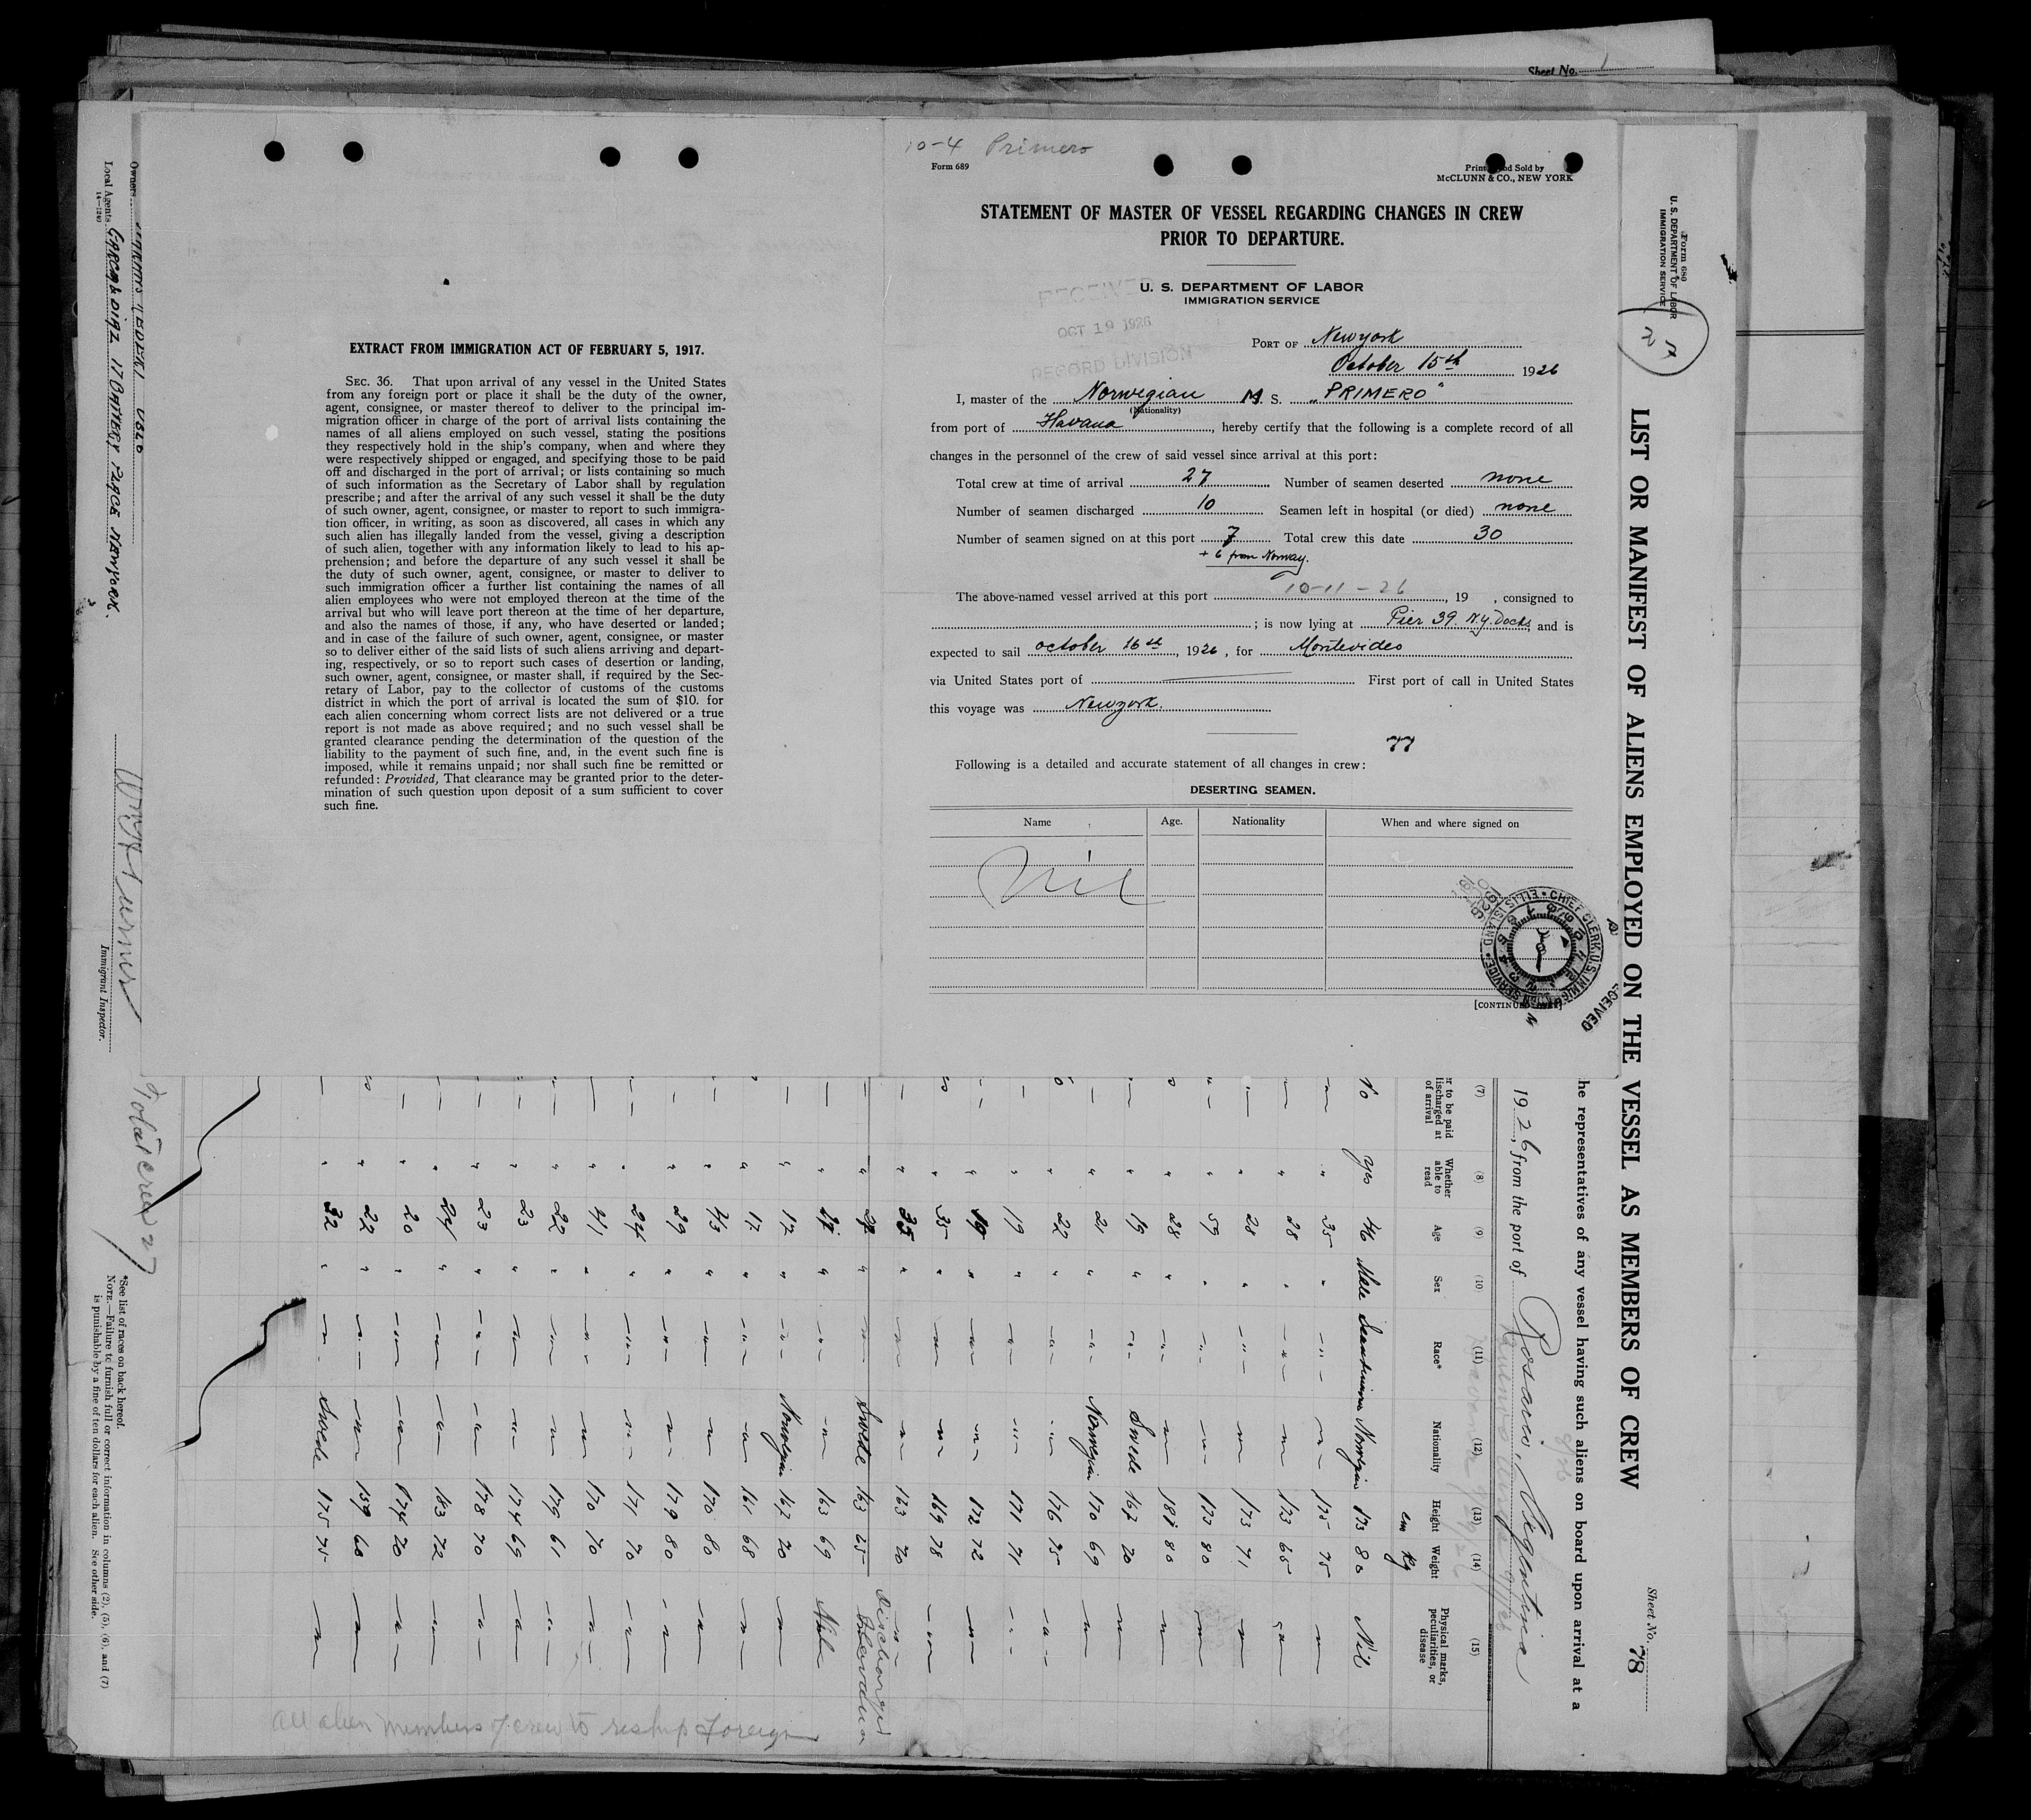 Sheet No.
10-4 Primero
Form 689
Printed and Sold by
McCLUNN & CO., NEW YORK
STATEMENT OF MASTER OF VESSEL REGARDING CHANGES IN CREW
PRIOR TO DEPARTURE.
U. S. DEPARTMENT OF LABOR
IMMIGRATION SERVICE
RECEIVED
OCT 19 1926
RECORD DIVISION
PORT OF Newyork
October 15th 1926
I, master of the Norwegian M. S. „PRIMERO"
(Nationality)
from port of Havana, hereby certify that the following is a complete record of all
changes in the personnel of the crew of said vessel since arrival at this port:
Total crew at time of arrival 27 Number of seamen deserted none
Number of seamen discharged 10 Seamen left in hospital (or died) none
Number of seamen signed on at this port 7 Total crew this date 30
+ 6 from Norway.
The above-named vessel arrived at this port 10-11-26, 19 , consigned to
; is now lying at Pier 39. N.Y. Docks and is
expected to sail october 16th, 1926, for Montevideo
via United States port of First port of call in United States
this voyage was Newyork.
77
Following is a detailed and accurate statement of all changes in crew:
DESERTING SEAMEN.
Name Age. Nationality When and where signed on
Nil
[CONTINUED OVER]
CHIEF CLERK U.S. IMMIGRATION SERVICE • ELLIS ISLAND
RECEIVED
EXTRACT FROM IMMIGRATION ACT OF FEBRUARY 5, 1917.
SEC. 36. That upon arrival of any vessel in the United States
from any foreign port or place it shall be the duty of the owner,
agent, consignee, or master thereof to deliver to the principal im-
migration officer in charge of the port of arrival lists containing the
names of all aliens employed on such vessel, stating the positions
they respectively hold in the ship's company, when and where they
were respectively shipped or engaged, and specifying those to be paid
off and discharged in the port of arrival; or lists containing so much
of such information as the Secretary of Labor shall by regulation
prescribe; and after the arrival of any such vessel it shall be the duty
of such owner, agent, consignee, or master to report to such immigra-
tion officer, in writing, as soon as discovered, all cases in which any
such alien has illegally landed from the vessel, giving a description
of such alien, together with any information likely to lead to his ap-
prehension; and before the departure of any such vessel it shall be
the duty of such owner, agent, consignee, or master to deliver to
such immigration officer a further list containing the names of all
alien employees who were not employed thereon at the time of the
arrival but who will leave port thereon at the time of her departure,
and also the names of those, if any, who have deserted or landed;
and in case of the failure of such owner, agent, consignee, or master
so to deliver either of the said lists of such aliens arriving and depart-
ing, respectively, or so to report such cases of desertion or landing,
such owner, agent, consignee, or master shall, if required by the Sec-
retary of Labor, pay to the collector of customs of the customs
district in which the port of arrival is located the sum of $10. for
each alien concerning whom correct lists are not delivered or a true
report is not made as above required; and no such vessel shall be
granted clearance pending the determination of the question of the
liability to the payment of such fine, and, in the event such fine is
imposed, while it remains unpaid; nor shall such fine be remitted or
refunded: Provided, That clearance may be granted prior to the deter-
mination of such question upon deposit of a sum sufficient to cover
such fine.
Form 680
U. S. DEPARTMENT OF LABOR
IMMIGRATION SERVICE
27
LIST OR MANIFEST OF ALIENS EMPLOYED ON THE VESSEL AS MEMBERS OF CREW
Sheet No. 78
he representatives of any vessel having such aliens on board upon arrival at a
1926, from the port of Rosario, Argentina
(7) (8) (9) (10 (11) (12) (13) (14) (15)
er to be paid
discharged at
of arrival
Whether
able to
read
Age
Sex
Race*
Nationality
Height
Weight
Physical marks,
peculiarities, or
disease
cm Kg
No yes 46 Male Scandinavn Norwegian 173 80 Nil
35 175 75
38 173 65
28 173 71
59 173 80
28 181 80
19 Swede 167 70
21 Norwegian 170 69
22 176 75
19 171 71
19 172 72
35 169 78
35 163 70
Swede 163 25 Discharged Havana
163 69 Nil
17 Norwegian 167 70
17 161 68
43 170 80
29 179 80
24 171 70
41 170 70
22 179 61
23 174 69
23 178 70
24 183 72
20 174 70
22 159 60
32 Swede 175 75
All alien members of crew to reship foreign
Total crew 27
Owners Oslo
Local Agents GARCIA & DIAZ 17 BATTERY PLACE NEWYORK.
14—1240
Immigrant Inspector.
*See list of races on back hereof.
NOTE.—Failure to furnish full or correct information in columns (2), (5), (6), and (7)
is punishable by a fine of ten dollars for each alien. See other side.